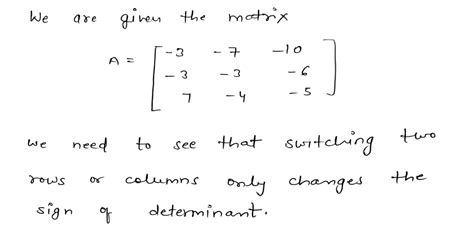 We are given the matrix
A = [ -3 -7 -10
-3 -3 -6
7 -4 -5 ]
we need to see that switching two
rows or columns only changes the
sign of determinant.